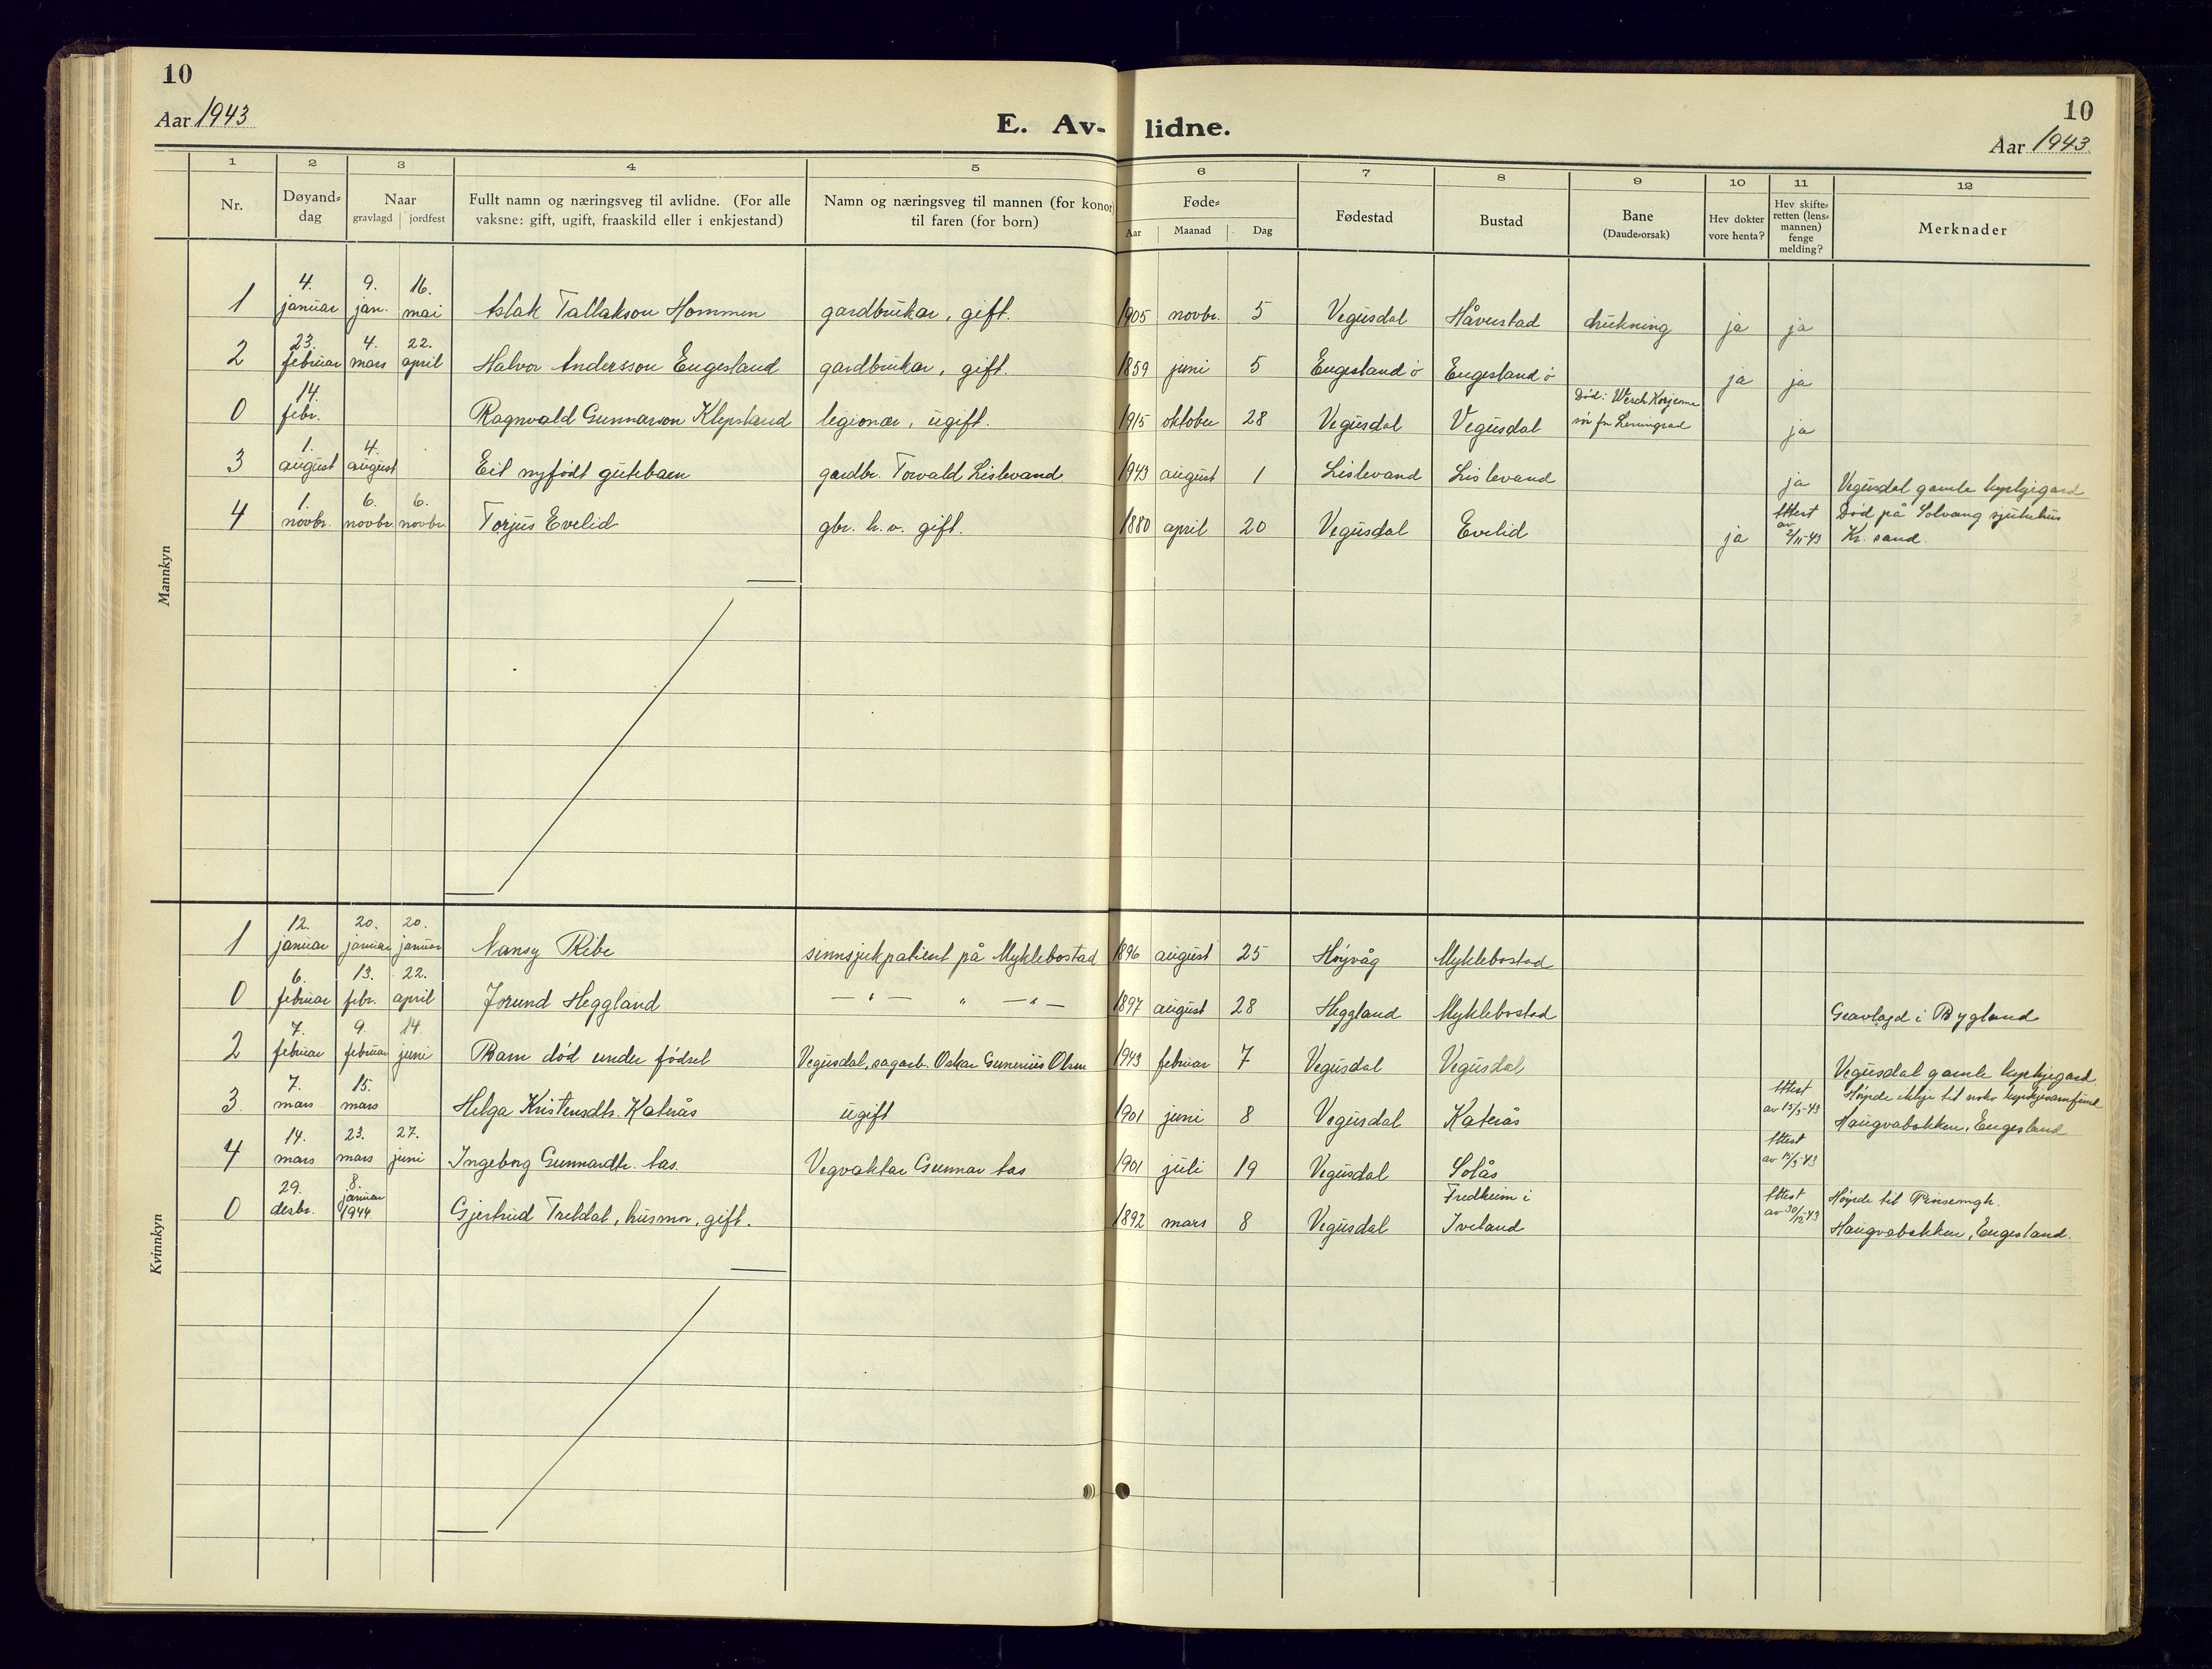 10
10
Aar 1943
E. Av- lidne.
Aar 1943
1 2 3 4 5 6 7 8 9 10 11 12
Nr.
Døyand-
dag
Naar
gravlagd jordfest
Fullt namn og næringsveg til avlidne. (For alle
vaksne: gift, ugift, fraaskild eller i enkjestand)
Namn og næringsveg til mannen (for konor)
til faren (for born)
Føde-
Aar Maanad Dag
Fødestad
Bustad
Bane
(Daude-orsak)
Hev dokter
vore henta?
Hev skifte-
retten (lens-
mannen)
fenge
melding?
Merknader
Mannkyn
4. 9. 16.
1 januar jan. mai Aslak Tallakson Hommen gardbrukar, gift. 1905 novbr. 5 Vegusdal Håverstad drukning ja ja
23. 4. 22.
2 februar mars april Halvor Andersson Engesland gardbrukar, gift. 1859 juni 5 Engesland ø Engesland ø ja ja
14. Død: Werch Korjenne
0 febr. Ragnvald Gunnarson Klepsland legionær, ugift. 1915 oktober 28 Vegusdal Vegusdal sør for Leningrad ja
1. 4.
3 august august Eit nyfødt gutebarn gardbr. Torvald Lislevand 1943 august 1 Lislevand Lislevand ja Vegusdal gamle kyrkjegard
1. 6. 6. Attest Død på Solvang sjukehus
4 novbr. novbr. novbr. Torjus Evelid gbr. h.v. gift. 1880 april 20 Vegusdal Evelid ja av 2/11-43 Kr. sand.
Kvinnkyn
12. 20. 20.
1 januar januar januar Nansy Ribe sinnsjukpatient på Myklebostad 1896 august 25 Høyvåg Myklebostad
6. 13. 22.
0 februar febr. april Jorund Heggland — " — " — " — 1897 august 28 Heggland Myklebostad Gravlagd i Bygland
7. 9. 14.
2 februar februar juni Barn død under fødsel Vegusdal, sagarb. Oskar Gunerius Olsen 1943 februar 7 Vegusdal Vegusdal Vegusdal gamle kyrkjegard.
7. 15. Attest Høyrde ikkje til noko kyrkjesamfund
3. mars mars Helga Kristensdtr. Katerås ugift 1901 juni 8 Vegusdal Katerås av 15/3-43 Haugvabakken, Engesland
14. 23. 27. Attest
4 mars mars juni Ingeborg Gunnardtr. Aas. Vegvaktar Gunnar Aas 1901 juli 19 Vegusdal Solås av 15/3-43
29. 8. Fredheim i Attest Høyrde til Pinsemgh.
0 desbr. januar 1944 Gjertrud Tveldal, husmor, gift. 1892 mars 8 Vegusdal Iveland av 30/12-43 Haugvabakken, Engesland.